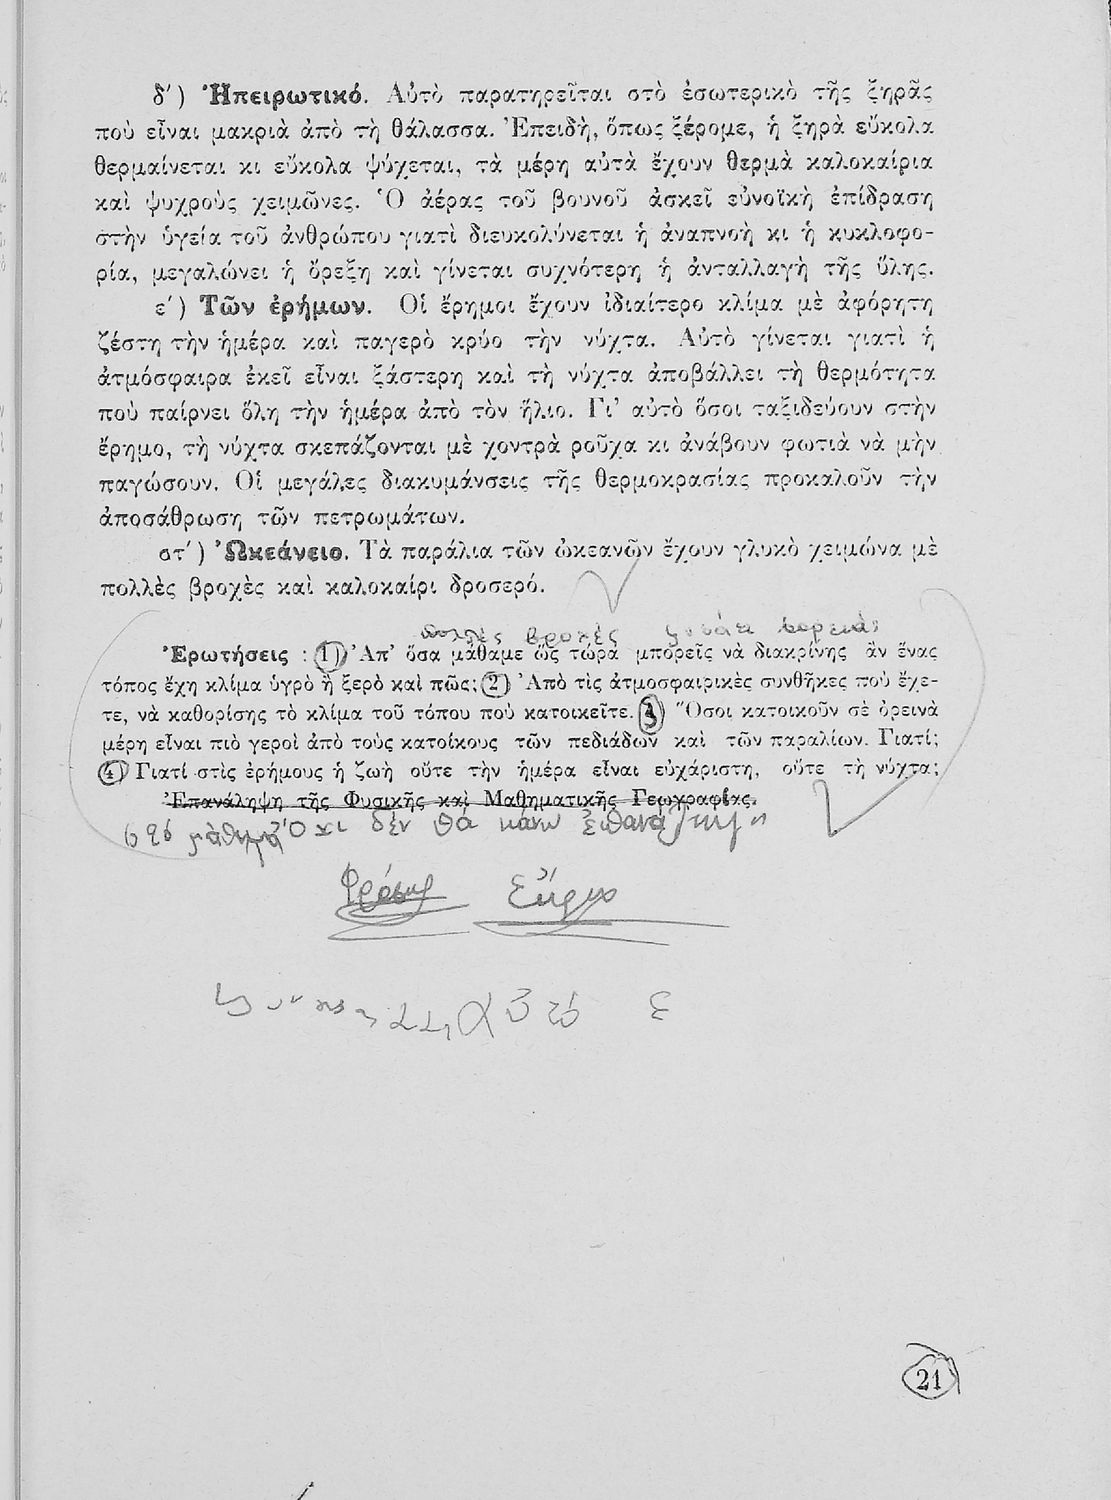 δ΄) Ἠπειρωτικό. Αὐτὸ παρατηρεῖται στὸ ἐσωτερικὸ τῆς ξηρᾶς
ποὺ εἶναι μακριὰ ἀπὸ τὴ θάλασσα. Ἐπειδὴ, ὅπως ξέρομε, ἡ ξηρὰ εὔκολα
θερμαίνεται κι εὔκολα ψύχεται, τὰ μέρη αὐτὰ ἔχουν θερμὰ καλοκαίρια
καὶ ψυχροὺς χειμῶνες. Ὁ ἀέρας τοῦ βουνοῦ ἀσκεῖ εὐνοϊκὴ ἐπίδραση
στὴν ὑγεία τοῦ ἀνθρώπου γιατὶ διευκολύνεται ἡ ἀναπνοὴ κι ἡ κυκλοφο-
ρία, μεγαλώνει ἡ ὄρεξη καὶ γίνεται συχνότερη ἡ ἀνταλλαγὴ τῆς ὕλης.
ε΄) Τῶν ἐρήμων. Οἱ ἔρημοι ἔχουν ἰδιαίτερο κλίμα μὲ ἀφόρητη
ζέστη τὴν ἡμέρα καὶ παγερὸ κρύο τὴν νύχτα. Αὐτὸ γίνεται γιατὶ ἡ
ἀτμόσφαιρα ἐκεῖ εἶναι ξάστερη καὶ τὴ νύχτα ἀποβάλλει τὴ θερμότητα
ποὺ παίρνει ὅλη τὴν ἡμέρα ἀπὸ τὸν ἥλιο. Γι' αὐτὸ ὅσοι ταξιδεύουν στὴν
ἔρημο, τὴ νύχτα σκεπάζονται μὲ χοντρὰ ροῦχα κι ἀνάβουν φωτιὰ νὰ μὴν
παγώσουν. Οἱ μεγάλες διακυμάνσεις τῆς θερμοκρασίας προκαλοῦν τὴν
ἀποσάθρωση τῶν πετρωμάτων.
στ΄) Ὠκεάνειο. Τὰ παράλια τῶν ὠκεανῶν ἔχουν γλυκὸ χειμώνα μὲ
πολλὲς βροχὲς καὶ καλοκαίρι δροσερό.
πολλὲς βροχὲς
Ἐρωτήσεις : 1) Ἀπ' ὅσα μάθαμε ὣς τώρα μπορεῖς νὰ διακρίνης ἂν ἕνας
τόπος ἔχη κλίμα ὑγρὸ ἢ ξερὸ καὶ πῶς; 2) Ἀπὸ τὶς ἀτμοσφαιρικὲς συνθῆκες ποὺ ἔχε-
τε, νὰ καθορίσης τὸ κλίμα τοῦ τόπου ποὺ κατοικεῖτε. 3) Ὅσοι κατοικοῦν σὲ ὀρεινὰ
μέρη εἶναι πιὸ γεροὶ ἀπὸ τοὺς κατοίκους τῶν πεδιάδων καὶ τῶν παραλίων. Γιατί;
4) Γιατί στὶς ἐρήμους ἡ ζωὴ οὔτε τὴν ἡμέρα εἶναι εὐχάριστη, οὔτε τὴ νύχτα;
Ἐπανάληψη τῆς Φυσικῆς καὶ Μαθηματικῆς Γεωγραφίας.
Ὄχι δὲν θὰ κάνω
21